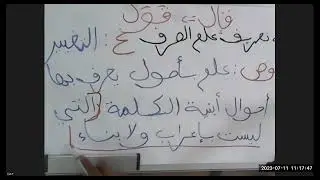 قال ← قول
تعريف علم الصرف ع: التغيير
وص: علم بأصول يعرف بها
أحوال أبنية الكلمة (التي
ليست بإعراب ولا بناء)
2023-07-11 11:17:47